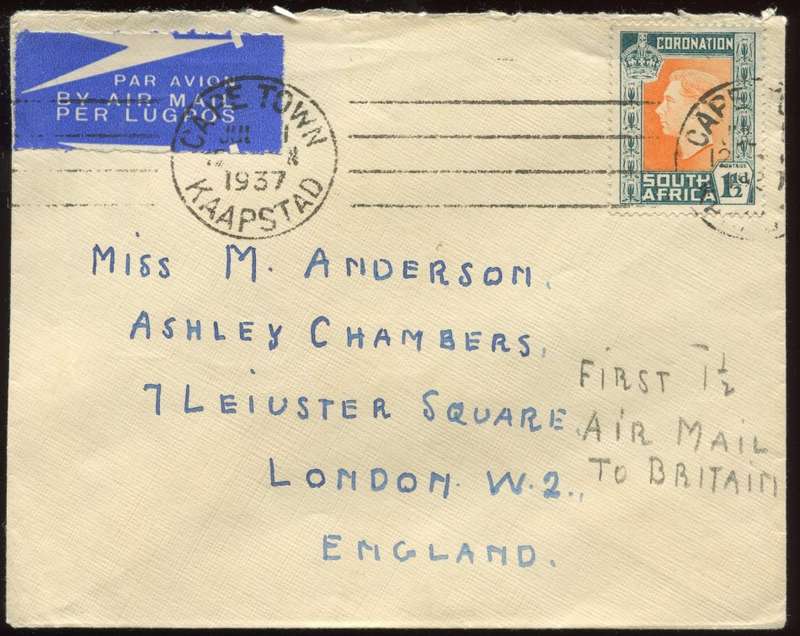 PAR AVION
BY AIR MAIL
PER LUGPOS
CAPE TOWN
1937
KAAPSTAD
CORONATION
POSTAGE
SOUTH
AFRICA
1½d
CAPE
Miss M. ANDERSON,
ASHLEY CHAMBERS,
7 LEIUSTER SQUARE,
LONDON. W.2.,
ENGLAND.
FIRST 1½
AIR MAIL
TO BRITAIN